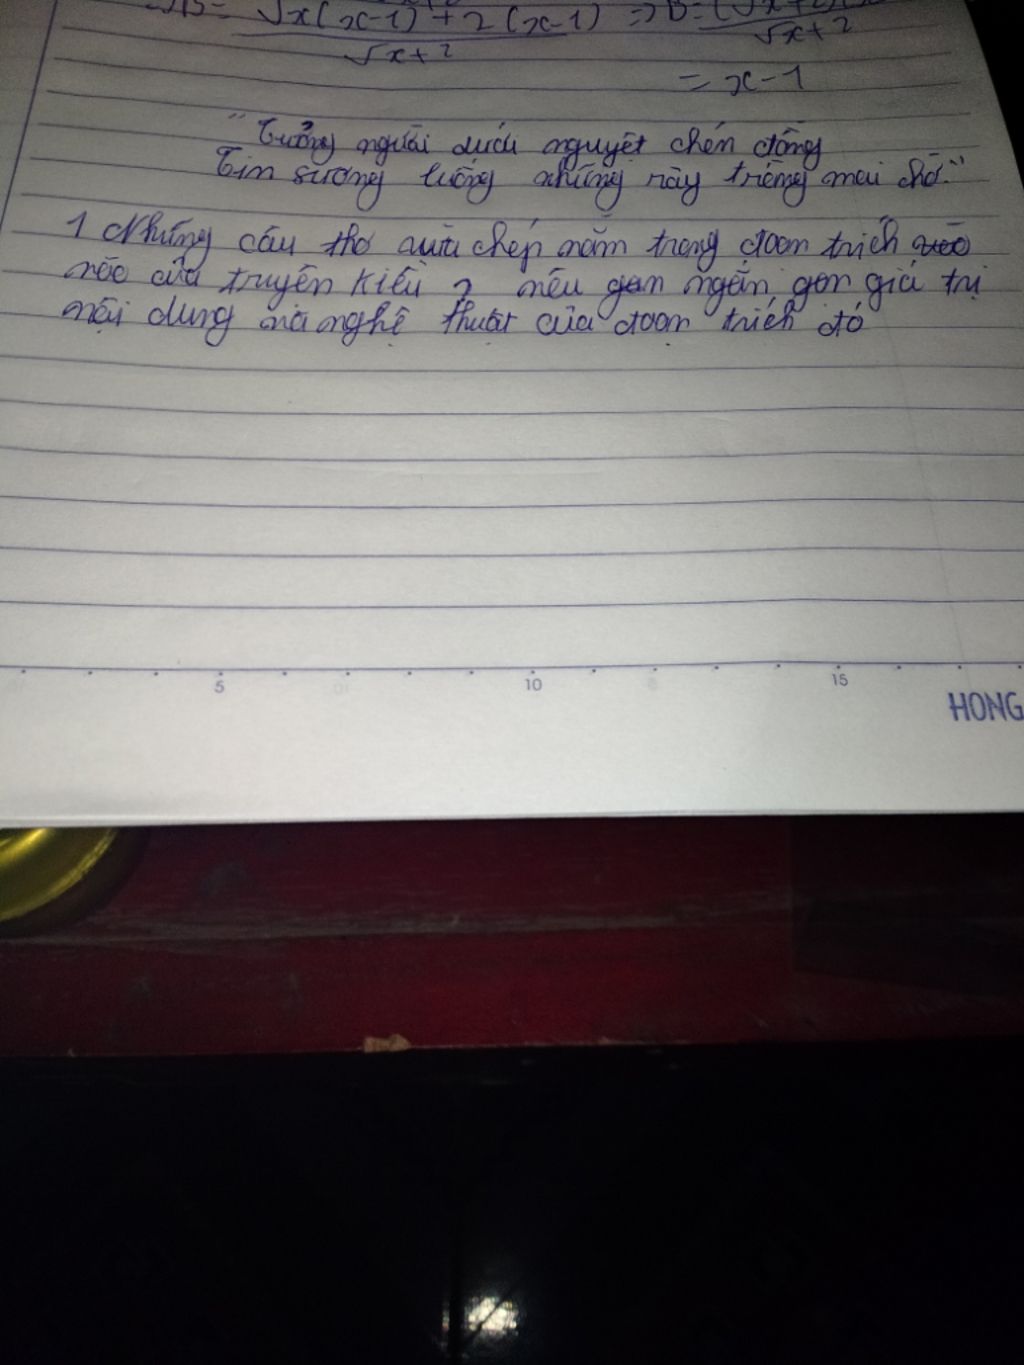 √x(x-1)+2(x-1) => B=
√x+2 √x+2
= x-1
"Tưởng người dưới nguyệt chén đồng
Tin sương luống những rày trông mai chờ."
1 Những câu thơ vừa chép nằm trong đoạn trích
nào của truyện Kiều ? nêu ngắn gọn giá trị
nội dung và nghệ thuật của đoạn trích đó
5 10 15
HONG